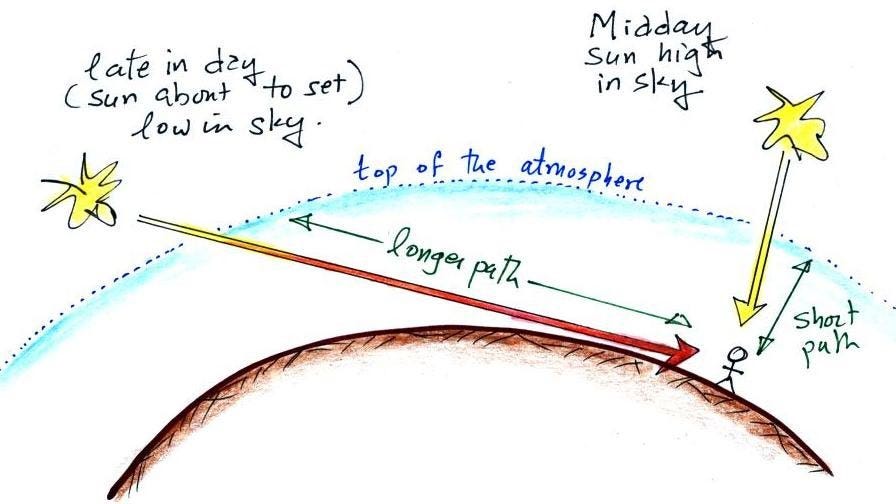 late in day
(sun about to set)
low in sky.
Midday
sun high
in sky
top of the atmosphere
longer path
short
path